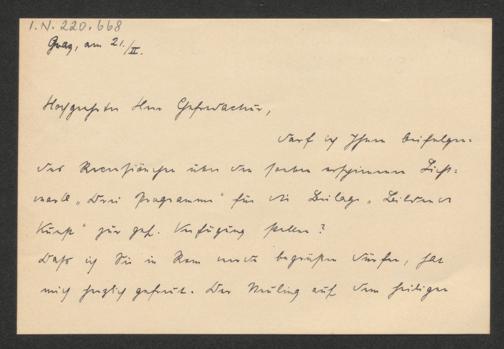 I.N. 220.668
Graz, am 21./II.
Hochgeehrter Herr Chefredacteur,
darf ich Ihnen beifolgen-
des Recensiönchen über das soeben erschienene Licht-
wark „Drei Programme“ für die Beilage „Bildende
Kunst“ zur gef. Verfügung stellen?
Daß ich Sie in Rom noch begrüßen durfte, hat
mich herzlich gefreut. Der Neuling auf dem heiligen